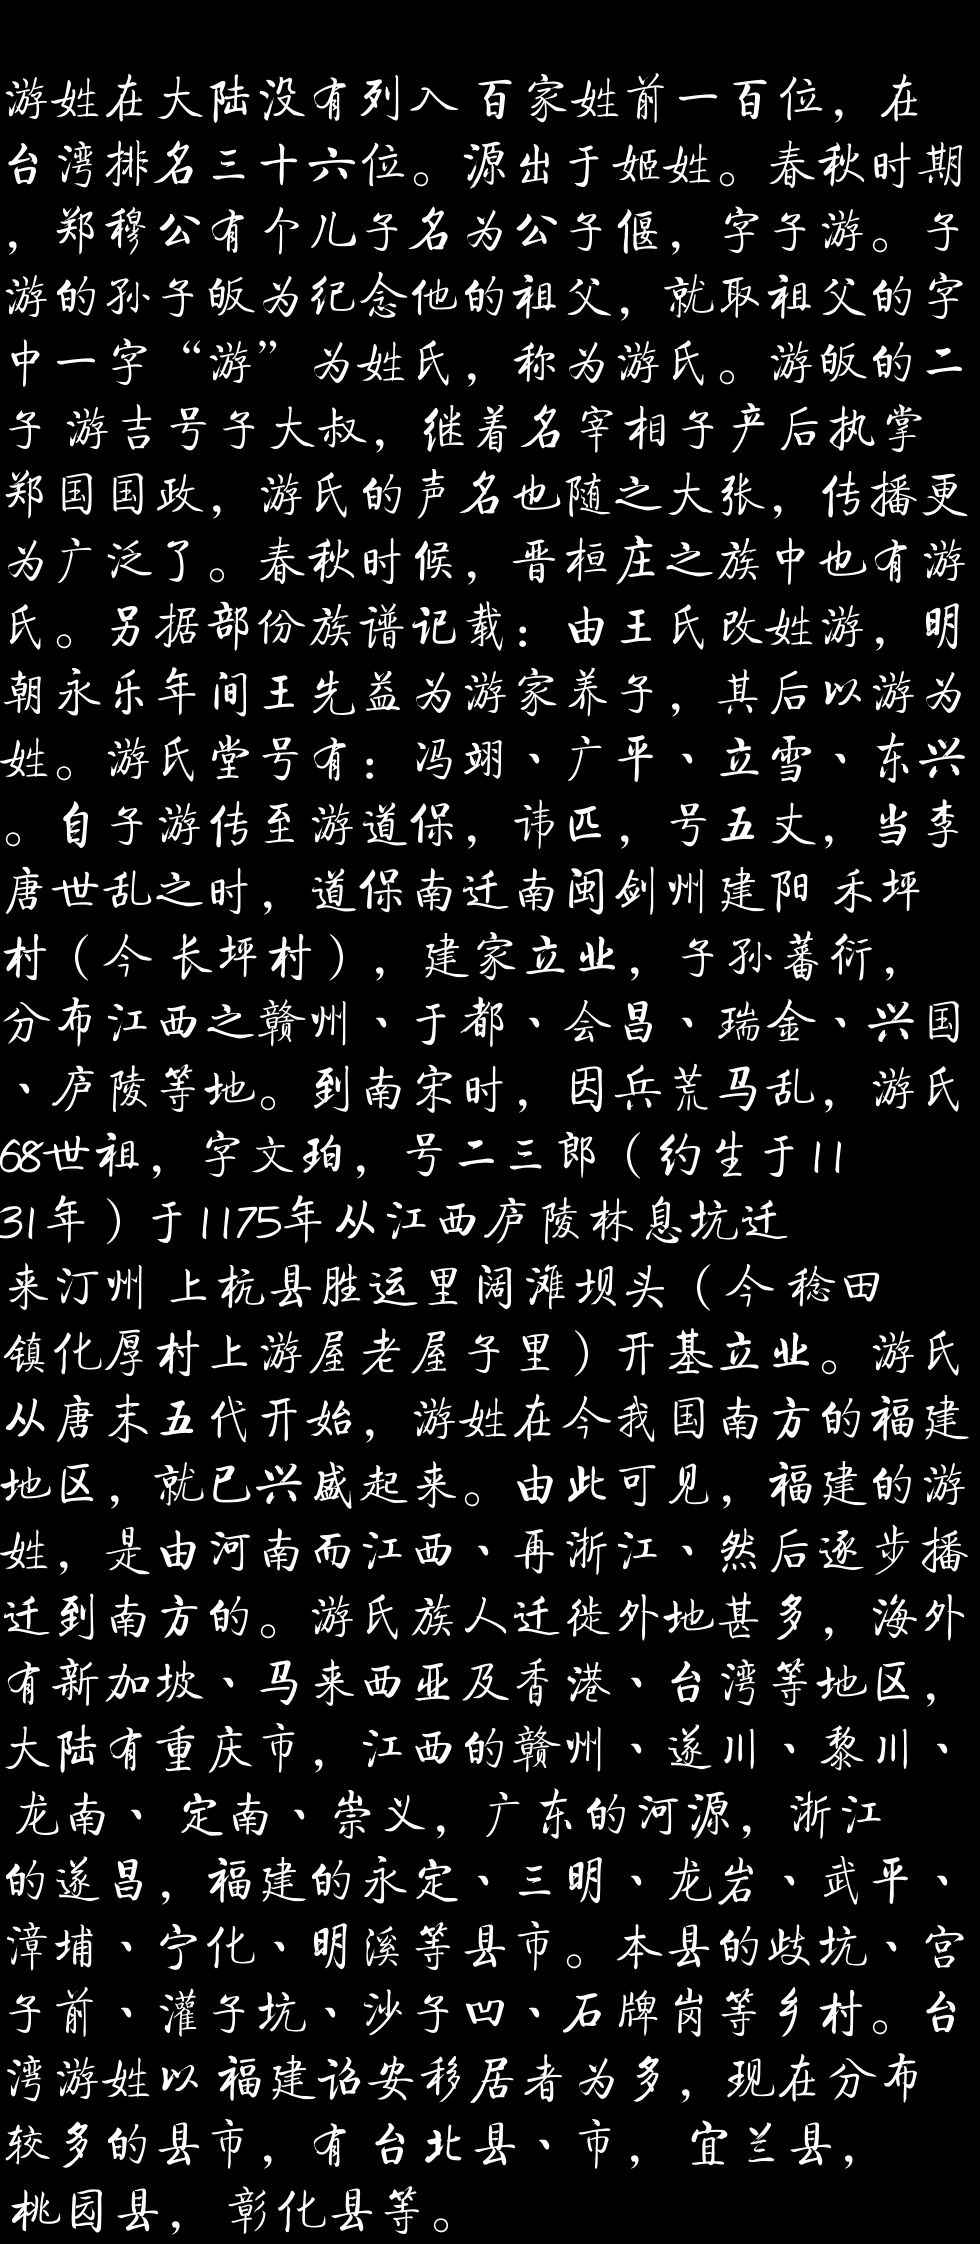 游姓在大陆没有列入 百家姓前一百位，在
台湾排名三十六位。源出于姬姓。春秋时期
，郑穆公有个儿子名为公子偃，字子游。子
游的孙子皈为纪念他的祖父，就取祖父的字
中一字“游”为姓氏，称为游氏。游皈的二
子 游吉号子大叔，继着名宰相子产后执掌
郑国国政，游氏的声名也随之大张，传播更
为广泛了。春秋时候，晋桓庄之族中也有游
氏。另据部份族谱记载：由王氏改姓游，明
朝永乐年间王先益为游家养子，其后以游为
姓。游氏堂号有：冯翊、广平、立雪、东兴
。自子游传至游道保，讳匹，号五丈，当李
唐世乱之时，道保南迁南闽剑州建阳 禾坪
村（今 长坪村），建家立业，子孙蕃衍，
分布江西之赣州、于都、会昌、瑞金、兴国
、庐陵等地。到南宋时，因兵荒马乱，游氏
68世祖，字文珀，号二三郎（约生于11
31年）于1175年从江西庐陵林息坑迁
来汀州 上杭县胜运里阔滩坝头（今 稔田
镇化厚村上游屋老屋子里）开基立业。游氏
从唐末五代开始，游姓在今我国南方的福建
地区，就已兴盛起来。由此可见，福建的游
姓，是由河南而江西、再浙江、然后逐步播
迁到南方的。游氏族人迁徙外地甚多，海外
有新加坡、马来西亚及香港、台湾等地区，
大陆有重庆市，江西的赣州、遂川、黎川、
龙南、 定南、崇义，广东的河源，浙江
的遂昌，福建的永定、三明、龙岩、武平、
漳埔、宁化、明溪等县市。本县的歧坑、宫
子前、灌子坑、沙子凹、石牌岗等乡村。台
湾游姓以 福建诏安移居者为多，现在分布
较多的县市，有 台北县、市， 宜兰县，
桃园县， 彰化县等。